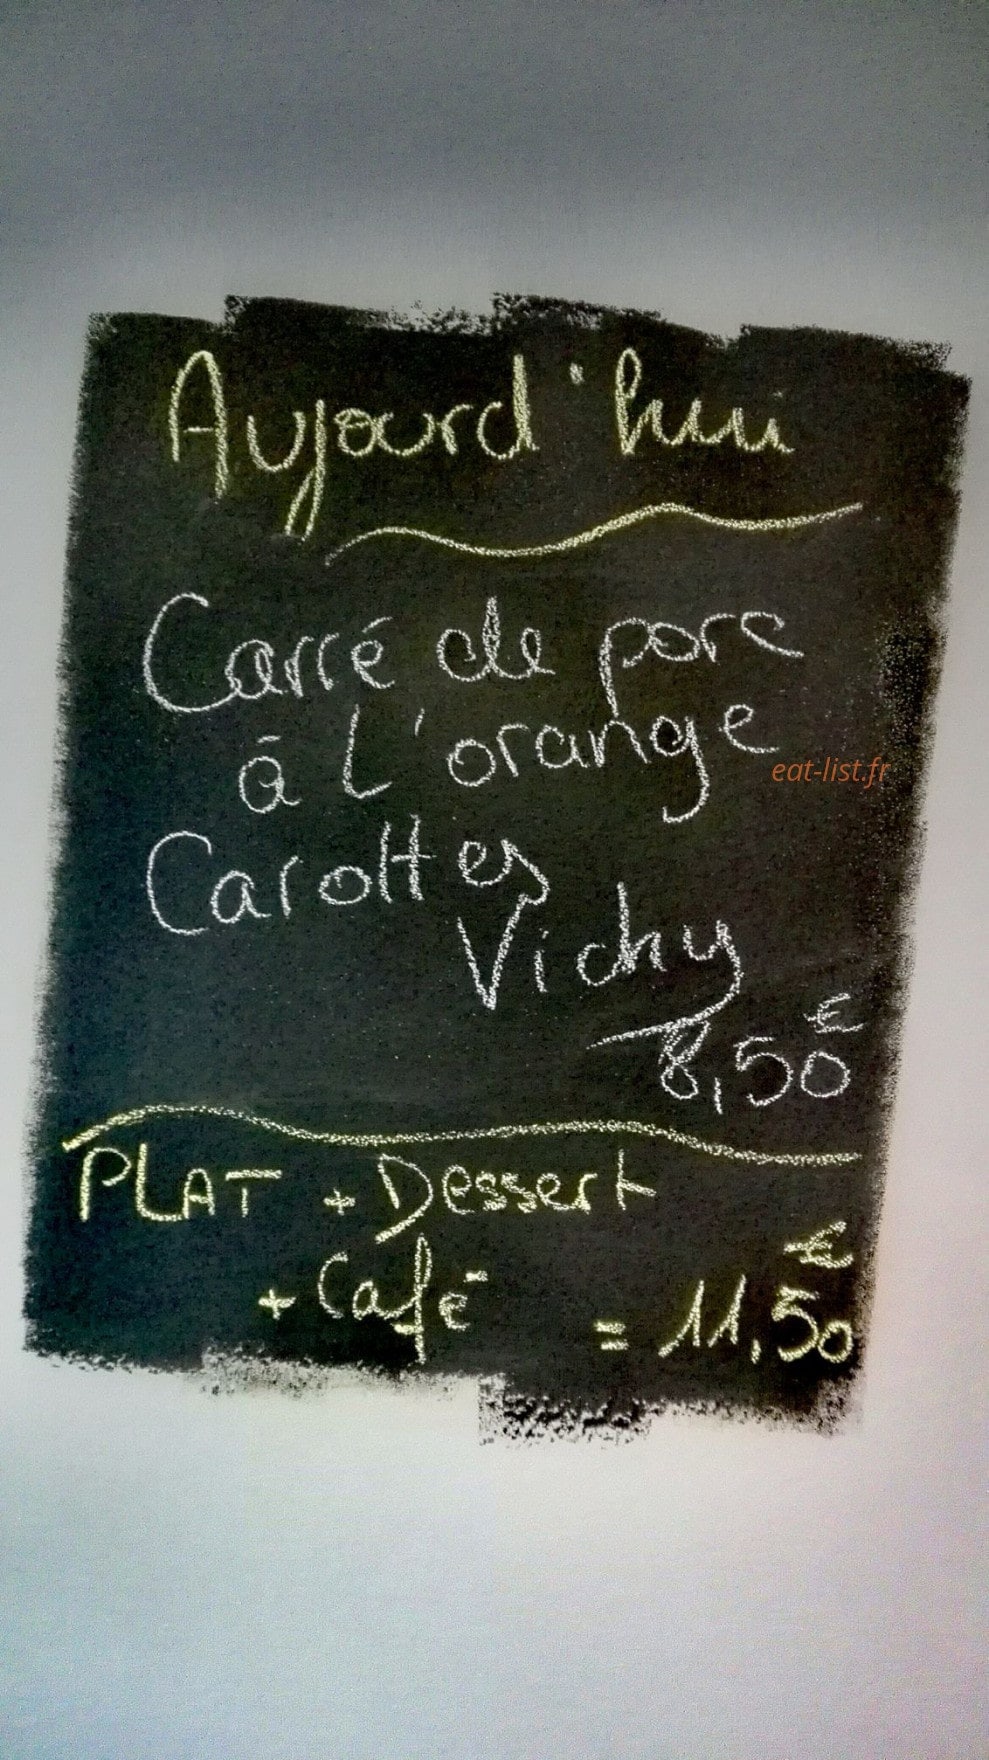 Aujourd'hui
Carré de porc
à L'orange
eat-list.fr
Carottes
Vichy
8,50€
PLAT + Dessert
+ Café = 11,50€